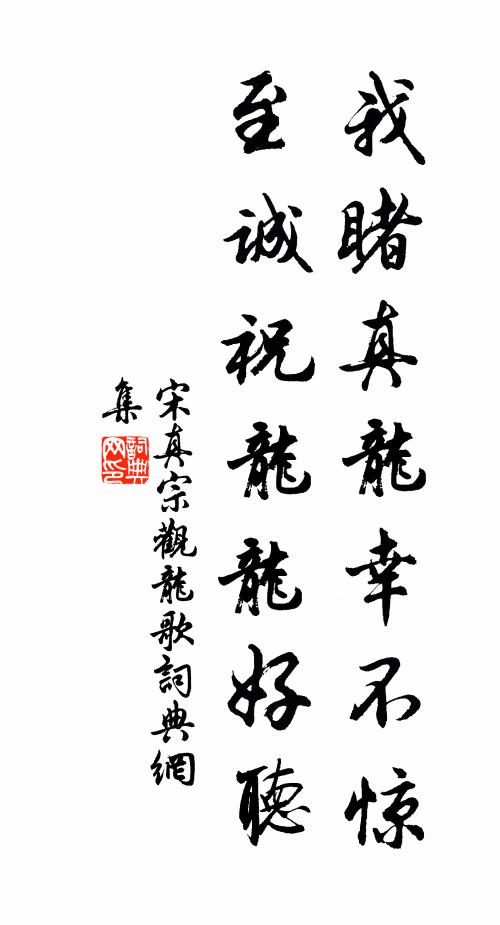 我睹真龍幸不惊
至诚祝龍龍好聽
宋真宗觀龍歌詞典網
集
詞典
网印